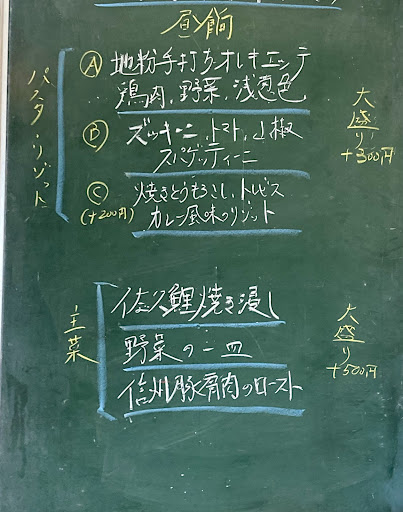 昼餉
パスタ・リゾット
Ⓐ 地粉手打ちオレキエッテ
鶏肉、野菜、浅葱色
Ⓑ ズッキーニ、トマト、山椒
スパゲッティーニ
Ⓒ 焼きとうもろこし、トレビス
(+200円) カレー風味のリゾット
大盛り
+300円
主菜
佐久鯉焼き浸し
野菜の一皿
信州豚肩肉のロースト
大盛り
+500円